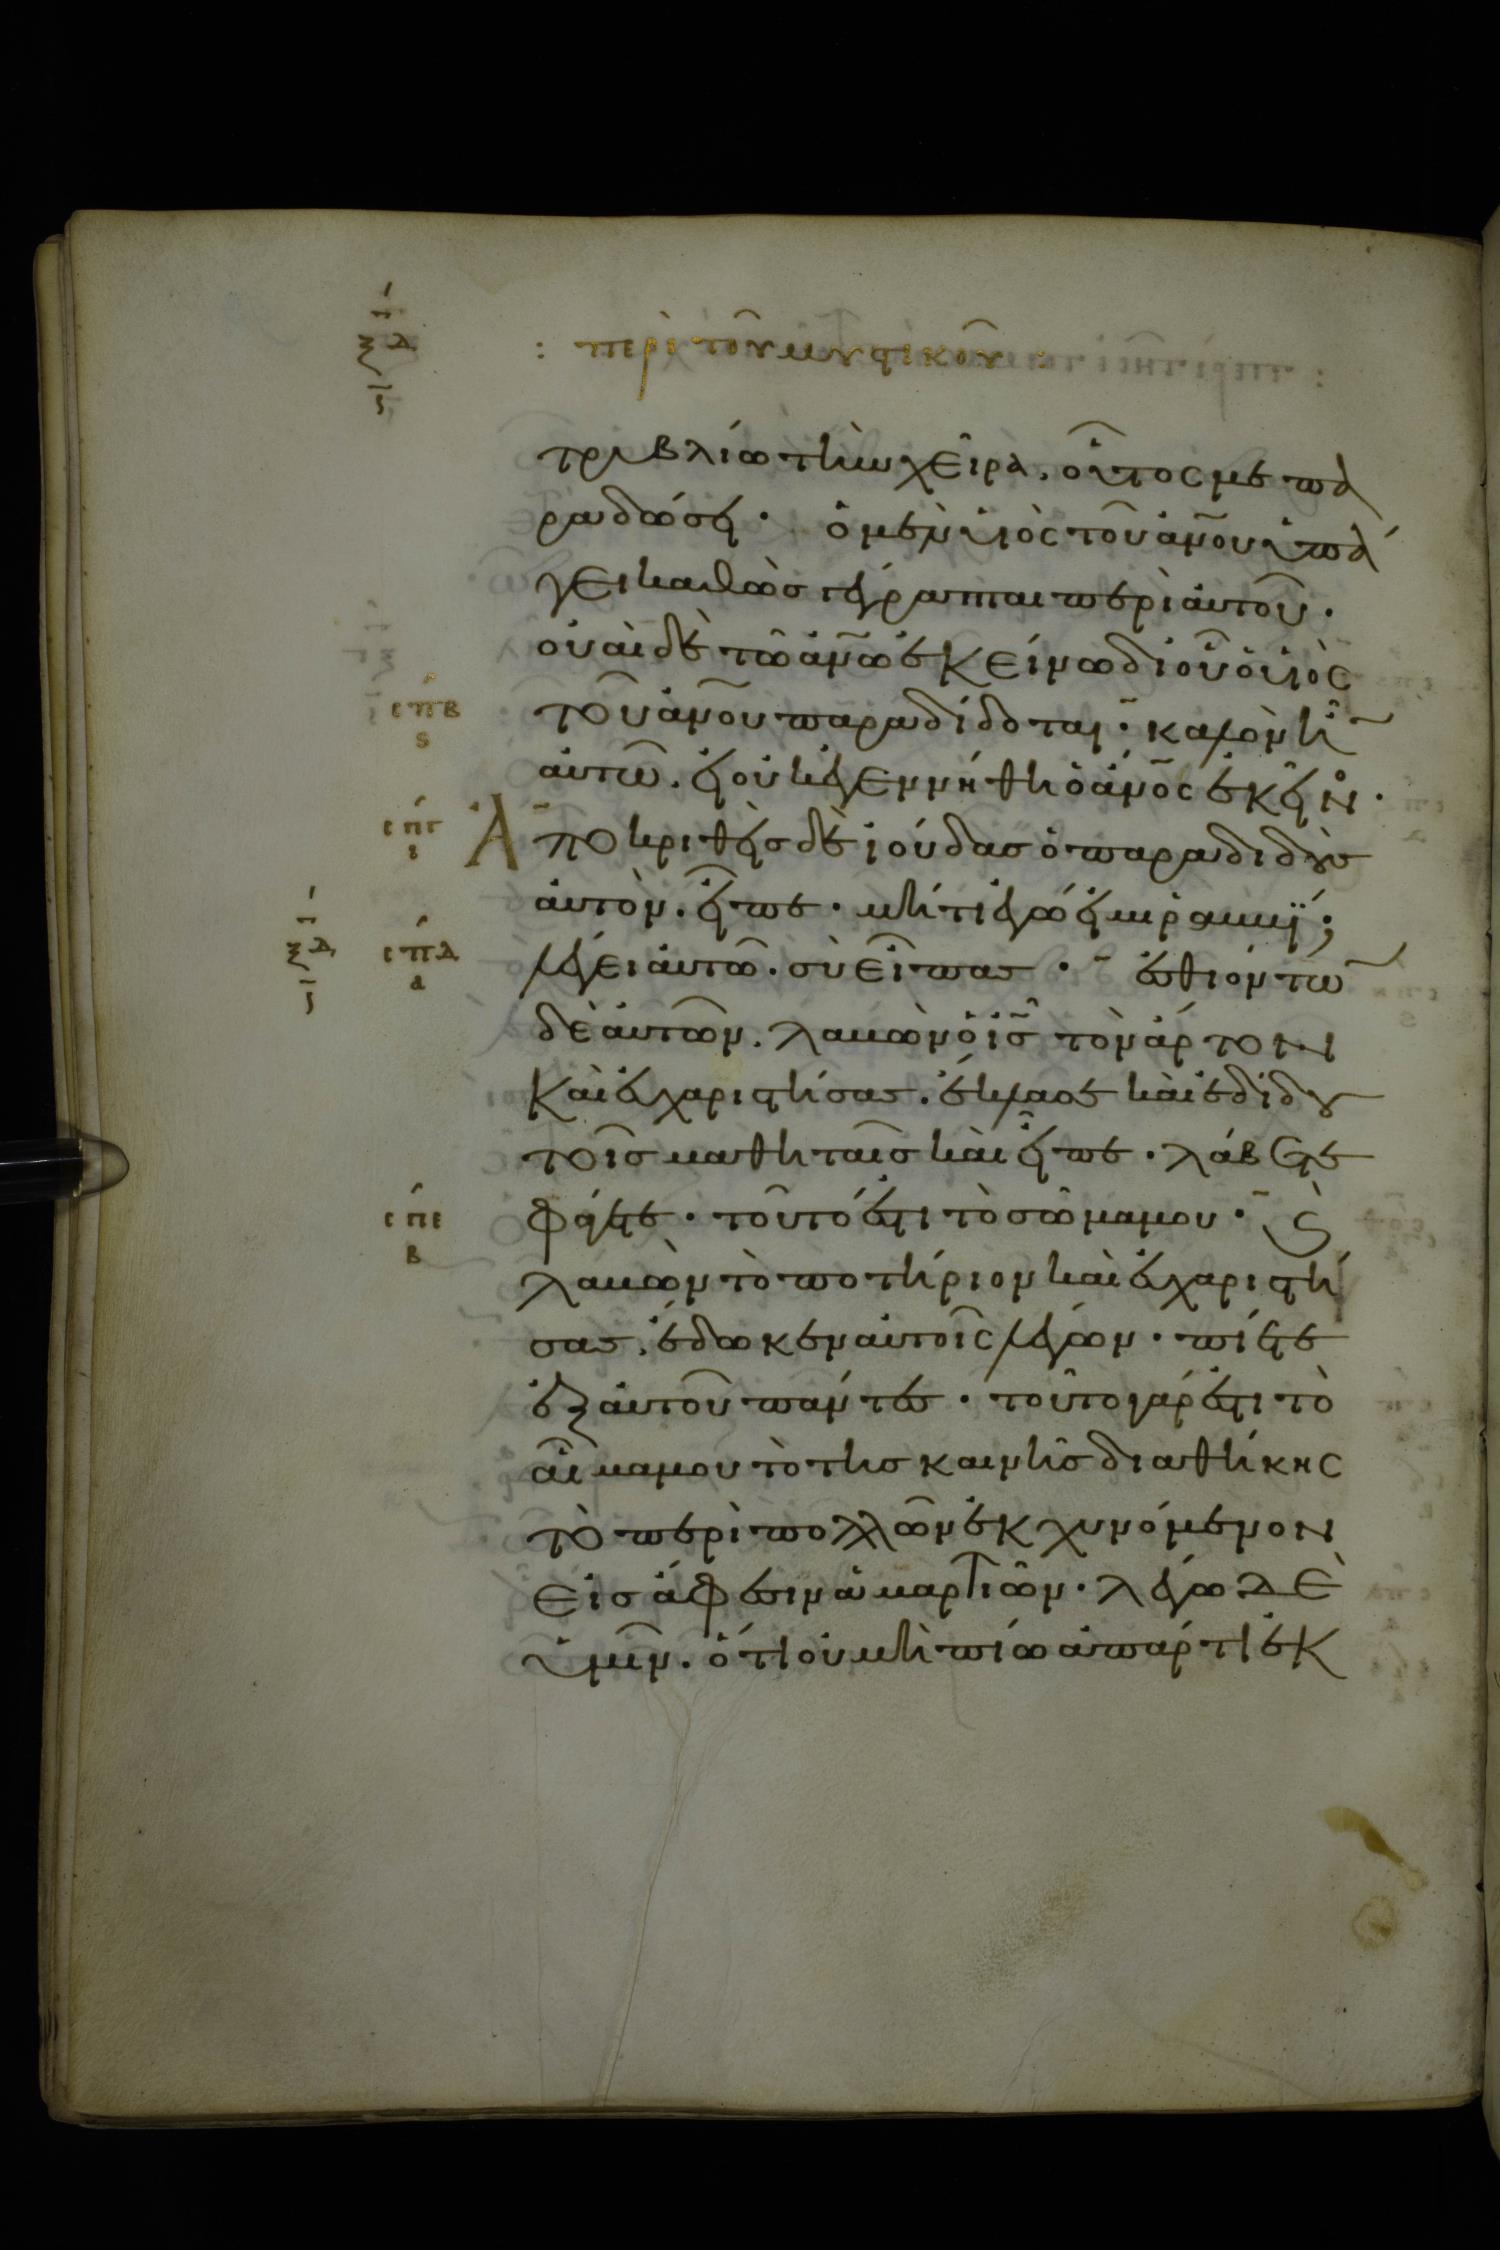 : περὶ τοῦ μυστικοῦ :
τρυβλίω τὴν χεῖρα. οὗτός με πα
ραδώσει· ὁ μὲν υἱὸς τοῦ ἀν̅ου ὑπά
γει καθὼς γέγραπται περὶ αὐτοῦ·
οὐαὶ δὲ τῶ ἀν̅ω ἐκείνω δι οὗ ὁ υἱὸς
τοῦ ἀν̅ου παραδίδοται· καλὸν ἦ̅
αὐτῶ. εἰ οὐκ ἐγεννήθη ὁ ἀν̅ος ἐκεῖνο·
Ἀποκριθεὶς δὲ ἰούδας ὁ παραδιδοὺς
αὐτὸν. εἶπε· μήτι ἐγώ εἰμι ραββΐ;
λέγει αὐτῶ· σὺ εἶπας· ἐσθιόντω̅
δὲ αὐτῶν. λαβὼν ὁ ι̅ς̅ τὸν ἄρτον
καὶ εὐχαριστήσας. ἔκλασε καὶ ἐδίδου
τοῖς μαθηταῖς καὶ εἶπε· λάβετε
φάγετε· τοῦτό ἐστι τὸ σῶμα μου· ϗ̀
λαβὼν τὸ ποτήριον καὶ εὐχαριστή
σας. ἔδωκεν αὐτοῖς λέγων· πίετε
ἐξ αὐτοῦ πάντες· τοῦτο γάρ ἐστι τὸ
αἷμα μου τὸ τῆς καινῆς διαθήκης
τὸ περὶ πολλῶν ἐκχυνόμενον
εἰς ἄφεσιν ἁμαρτιῶν· λέγω δὲ
ὑμῖν. ὅτι οὐ μὴ πίω ἀπάρτι ἐκ
σπβ
ς
σπγ
ι
σπδ
α
σπε
β